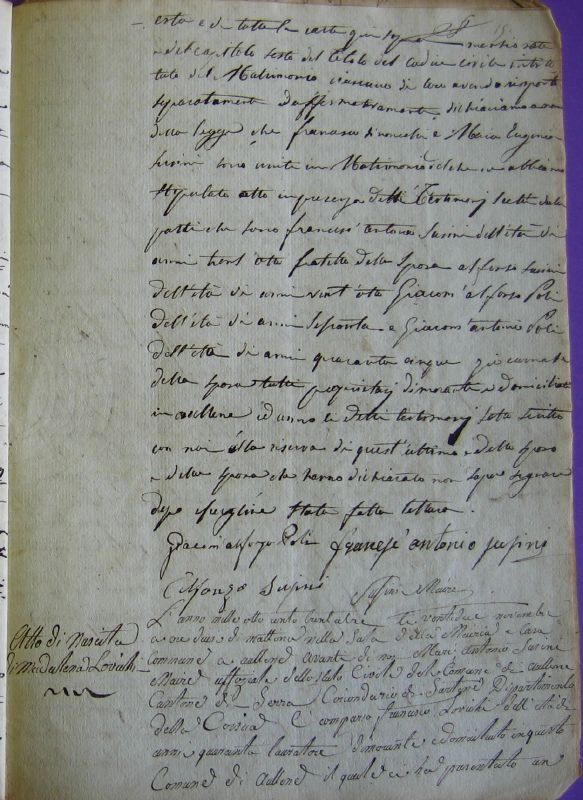 esta e di tutte le carte qui sop
del capitolo sesto del titolo del codice civile
tulo del Matrimonio ciascuno di loro avendo risposto
separatamente ed affermativamente dichiariamo a nome
della legge che francesco e Maria Eugenia
Susini sono uniti in Matrimonio del che ne abbiamo
stipulato atto in presenza delli Testimonj scelti dalle
parti che sono francesc'antonio Susini dell'età di
anni trent'otto fratello della sposa alfonso susini
dell'età di anni vent'otto Giacom'alfonso Poli
dell'età di anni sessanta e Giacom'antonio Poli
dell'età di anni quaranta cinque
della sposa tutti dimoranti e domiciliati
in aullene ed anno li detti testimonj sotto scritto
con noi alla riserva di quest'ultimo e dello sposo
e della sposa che hanno dichiarato non sapere segnare
dopo essergline stata fatta lettura.
Giacom'alfonzo Poli franesc'antonio susini
Alfonzo Susini Susini Maire
Atto di nascita
di Madalena
L'anno mille otto cento trenta tre li ventidue novembre
a ore due di mattina nella Sala della Mairia e Casa
commune a aullene avante di noi Mari Antonio Susini
Maire uffiziale dello stato Civile del Comune di aullene
Cantone di Serra Circondario di Sartene Dipartimento
della Corsica è comparso francesco dell'età di
anni quaranta lauratore dimorante e domiciliato in questo
Comune di aullene il quale ci ha presentato un